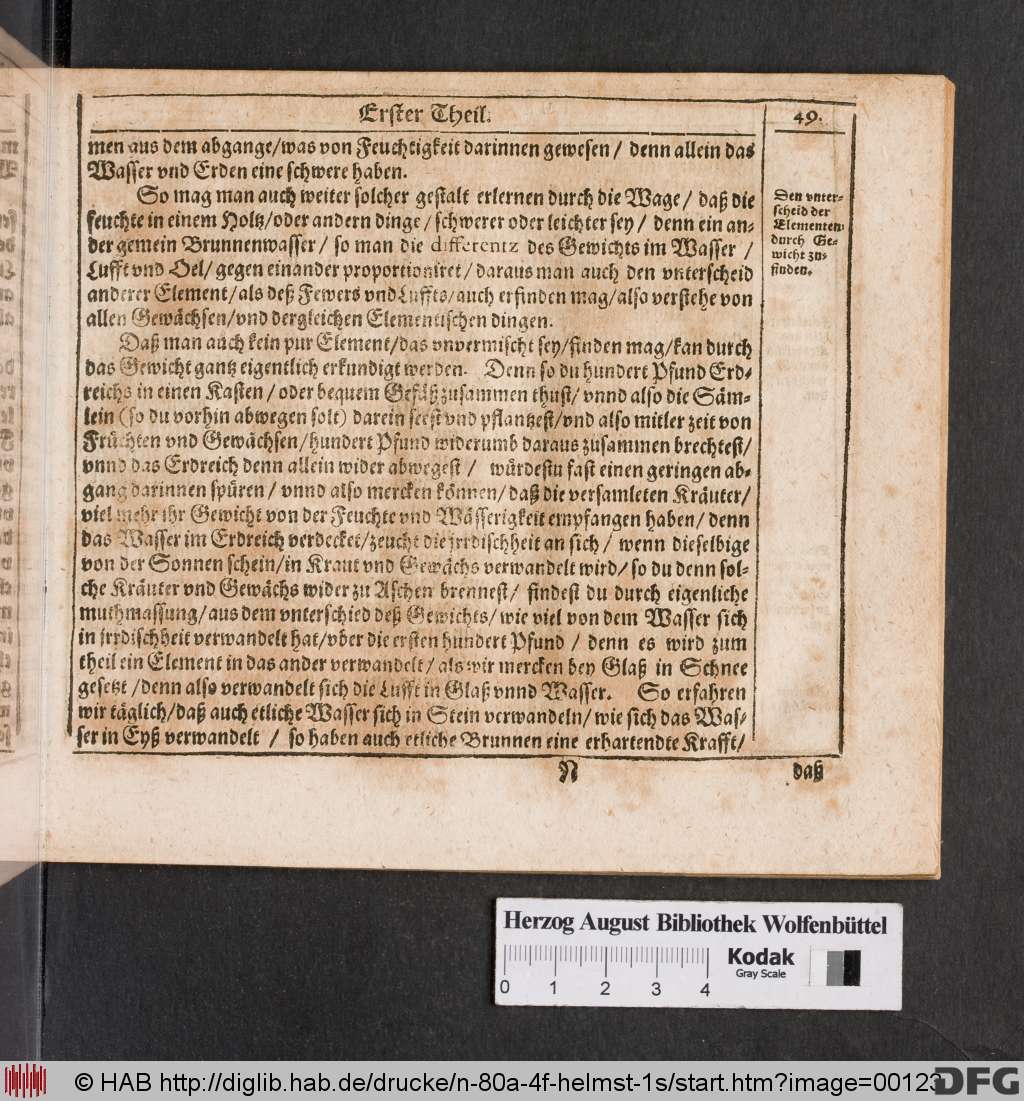 Erster Theil.
49.
men aus dem abgange/was von Feuchtigkeit darinnen gewesen / denn allein das
Wasser vnd Erden eine schwere haben.
So mag man auch weiter solcher gestalt erlernen durch die Wage / daß die
feuchte in einem Holtz/oder andern dinge / schwerer oder leichter sey / denn ein an-
der gemein Brunnenwasser / so man die differentz des Gewichts im Wasser /
Lufft vnd Oel/ gegen einander proportioniret/ daraus man auch den vnterscheid
anderer Element/als deß Fewers vnd Luffts/auch erfinden mag/also verstehe von
allen Gewächsen/vnd dergleichen Elementischen dingen.
Daß man auch kein pur Element/das vnvermischt sey/finden mag/kan durch
das Gewicht gantz eigentlich erkundigt werden. Denn so du hundert Pfund Erd-
reichs in einen Kasten / oder bequem Gefäß zusammen thust/ vnnd also die Säm-
lein (so du vorhin abwegen solt) darein seest vnd pflantzest/vnd also mitler zeit von
Früchten vnd Gewächsen/hundert Pfund widerumb daraus zusammen brechtest/
vnnd das Erdreich denn allein wider abwegest / würdestu fast einen geringen ab-
gang darinnen spüren / vnnd also mercken können/ daß die versamleten Kräuter/
viel mehr ihr Gewicht von der Feuchte vnd Wässerigkeit empfangen haben/ denn
das Wasser im Erdreich verdecket/zeucht die jrrdischheit an sich / wenn dieselbige
von der Sonnen schein/in Kraut vnd Gewächs verwandelt wird/ so du denn sol-
che Kräuter vnd Gewächs wider zu Aschen brennest/ findest du durch eigenliche
muthmassung/aus dem vnterschied deß Gewichts/ wie viel von dem Wasser sich
in jrrdischheit verwandelt hat/vber die ersten hundert Pfund / denn es wird zum
theil ein Element in das ander verwandelt/ als wir mercken bey Glaß in Schnee
gesetzt /denn also verwandelt sich die Lufft in Glaß vnnd Wasser. So erfahren
wir täglich/daß auch etliche Wasser sich in Stein verwandeln/ wie sich das Was-
ser in Eyß verwandelt / so haben auch etliche Brunnen eine erhartendte Krafft/
N
daß
Den vnter-
scheid der
Elementen
durch Ge-
wicht zu-
finden.
Herzog August Bibliothek Wolfenbüttel
0 1 2 3 4
Kodak
Gray Scale
© HAB http://diglib.hab.de/drucke/n-80a-4f-helmst-1s/start.htm?image=00123
DFG